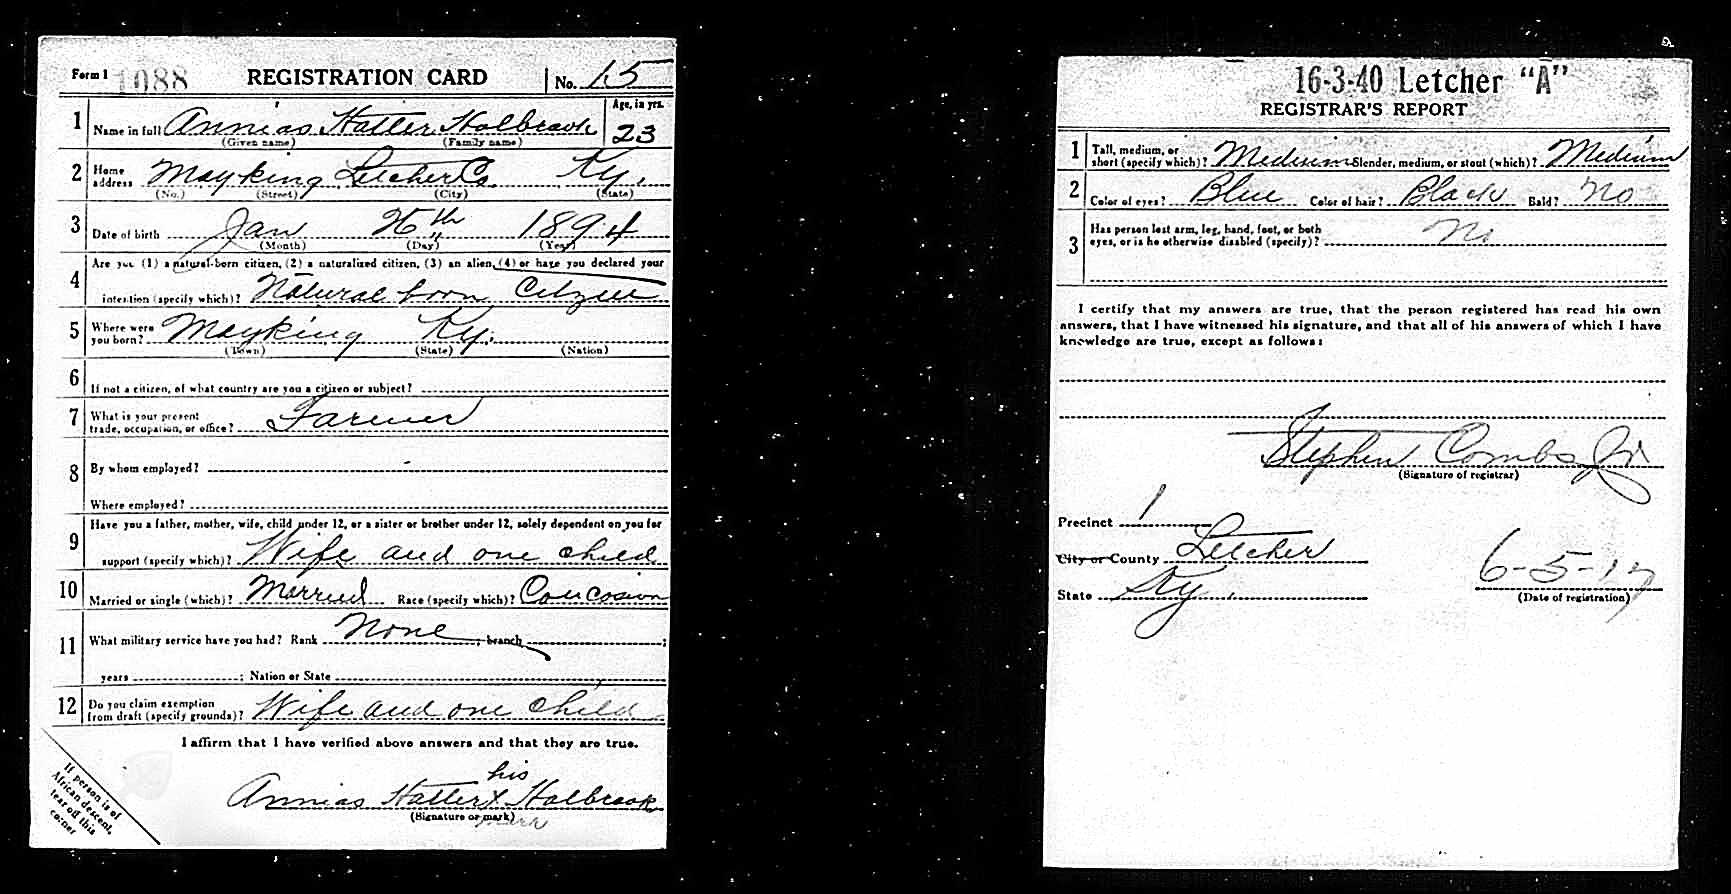 Form 1 1088 REGISTRATION CARD No. 15
1 Name in full Annias Hatter Holbrook Age, in yrs. 23
(Given name) (Family name)
2 Home address Mayking Letcher Co. Ky.
(No.) (Street) (City) (State)
3 Date of birth Jan 26th 1894
(Month) (Day) (Year)
4 Are you (1) a natural-born citizen, (2) a naturalized citizen, (3) an alien, (4) or have you declared your
intention (specify which)? Natural born Citzen
5 Where were you born? Mayking Ky.
(Town) (State) (Nation)
6 If not a citizen, of what country are you a citizen or subject?
7 What is your present
trade, occupation, or office? Farmer
8 By whom employed?
Where employed?
9 Have you a father, mother, wife, child under 12, or a sister or brother under 12, solely dependent on you for
support (specify which)? Wife and one child
10 Married or single (which)? Married Race (specify which)? Concosian
11 What military service have you had? Rank None ; branch ;
years ; Nation or State
12 Do you claim exemption
from draft (specify grounds)? Wife and one child
I affirm that I have verified above answers and that they are true.
his
Annias Hatter X Holbrook
(Signature or mark) mark
If person is of
African descent,
tear off this
corner
16-3-40 Letcher "A"
REGISTRAR'S REPORT
1 Tall, medium, or
short (specify which)? Medium Slender, medium, or stout (which)? Medium
2 Color of eyes? Blue Color of hair? Black Bald? No
3 Has person lost arm, leg, hand, foot, or both
eyes, or is he otherwise disabled (specify)? No
I certify that my answers are true, that the person registered has read his own
answers, that I have witnessed his signature, and that all of his answers of which I have
knowledge are true, except as follows:
Stephen Combs Jr
(Signature of registrar)
Precinct 1
City or County Letcher
State Ky.
6-5-17
(Date of registration)